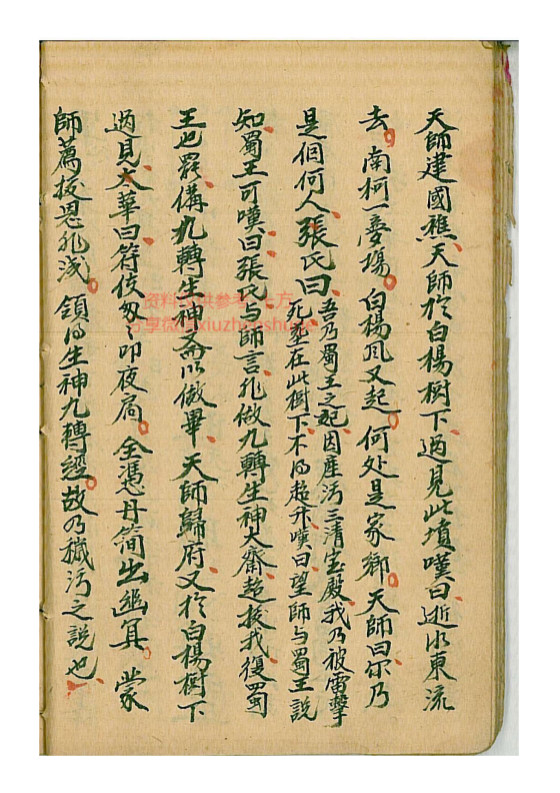 天師建國醮、天師於白楊樹下、過見此墳嘆曰、逝水東流
去。南柯一夢場。白楊風又起。何处是家鄉。天師曰、尔乃
是個何人、張氏曰、
吾乃蜀王之妃、因產汚三清宝殿、我乃被雷擊
死、塟在此樹下、不得超升、嘆曰、望師与蜀王說
知、蜀王可嘆曰、張氏与師言、非做九轉生神大齋、超拔我、復蜀
王也罷、僃九轉生神斎以做畢、天師歸府、又於白楊樹下
過見、太華曰、符使匆々叩夜扃。全憑丹簡出幽冥。蒙
師薦拔恩非浅。領得生神九轉經。故乃穢汚之說也、
资料仅供参考